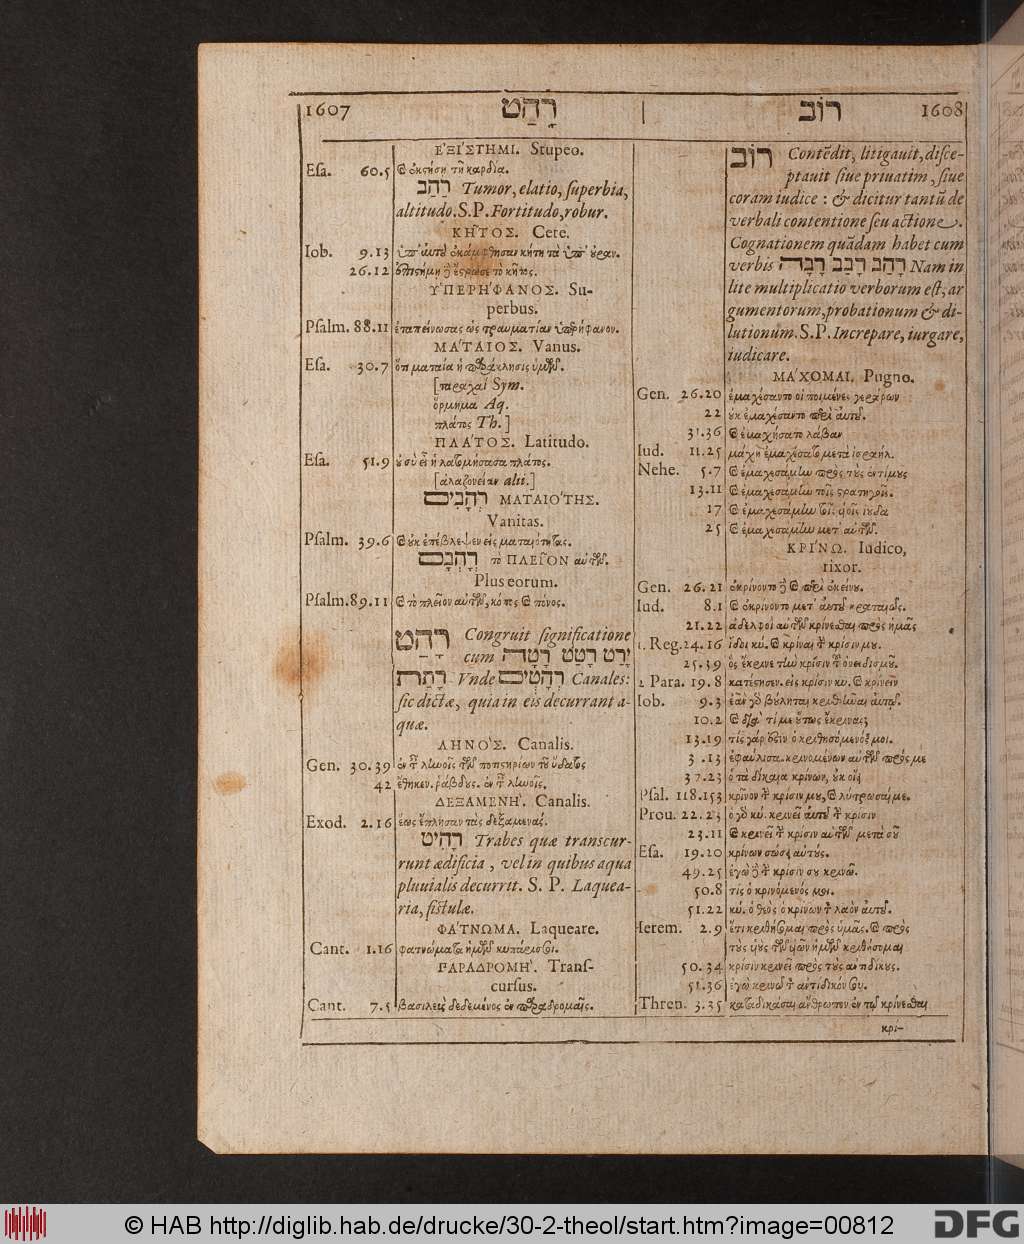 1607 רָהַט
רוֹב 1608
ΕΞΙ´ΣΤΗΜΙ. Stupeo.
Esa. 60.5 ἐκστήση τῇ καρδία.
רַהַב Tumor, elatio, superbia,
altitudo. S.P. Fortitudo, robur.
ΚΗ͂ΤΟΣ. Cete.
Iob. 9.13 ὑπ' αὐτοῦ ἐκάμφθησαν κήτη τὰ ὑπ' οὐραν.
26.12 ἐπιστήμη ἔστρωσε τὸ κῆτος.
ΥΠΕΡΗ´ΦΑΝΟΣ. Su-
perbus.
Psalm. 88.11 ἐταπείνωσας ὡς τραυματίαν ὑπερήφανον.
ΜΑ´ΤΑΙΟΣ. Vanus.
Esa. 30.7 ὅτι ματαία ἡ παράκλησις ὑμῶν.
[ταραχαὶ Sym.
ὅρμημα Aq.
πλάτος Th.]
ΠΛΑ´ΤΟΣ. Latitudo.
Esa. 51.9 οὐ σὺ εἶ ἡ λατομήσασα πλάτος.
[ἀλαζονείαν alii.]
רְהָבִים ΜΑΤΑΙΟ´ΤΗΣ.
Vanitas.
Psalm. 39.6 καὶ οὐκ ἐπέβλεψεν εἰς ματαιότητας.
רָהְבָּם τὸ ΠΛΕΙ͂ΟΝ αὐτῶν.
Plus eorum.
Psalm. 89.11 καὶ τὸ πλεῖον αὐτῶν, κόπος καὶ πόνος.
רָהַט Congruit significatione
cum יָרַט רָטַט רָטָה
רָתַת Vnde רְהָטִים Canales:
sic dictæ, quia in eis decurrant a-
quæ.
ΛΗΝΟ´Σ. Canalis.
Gen. 30.39 ἐν τ ληνοῖς τῶν ποτιστηρίων τοῦ ὕδατος
42 ἔθηκεν. ῥάβδους. ἐν τ ληνοῖς.
ΔΕΞΑΜΕΝΗ´. Canalis.
Exod. 2.16 ἕως ἔπλησαν τὰς δεξαμενάς.
רָהִיט Trabes quæ transcur-
runt ædificia, vel in quibus aqua
pluuialis decurrit. S. P. Laquea-
ria, fistulæ.
ΦΑ´ΤΝΩΜΑ. Laqueare.
Cant. 1.16 φατνώματα ἡμῶν κυπάρισσοι.
ΠΑΡΑΔΡΟΜΗ´. Trans-
cursus.
Cant. 7.5 βασιλεὺς δεδεμένος ἐν παραδρομαῖς.
רוֹב Contēdit, litigauit, disce-
ptauit siue priuatim, siue
coram iudice: & dicitur tantū de
verbali contentione seu actione.
Cognationem quādam habet cum
verbis רָהַב רָבַב רָבָה Nam in
lite multiplicatio verborum est, ar
gumentorum, probationum & di-
lutionum. S.P. Increpare, iurgare,
iudicare.
ΜΑ´ΧΟΜΑΙ. Pugno.
Gen. 26.20 ἐμαχέσαντο οἱ ποιμένες γεράρων
22 οὐκ ἐμαχέσαντο περὶ αὐτοῦ.
31.36 καὶ ἐμαχήσατο λάβαν
Iud. 11.25 μάχῃ ἐμαχέσατο μετὰ ἰσραήλ.
Nehe. 5.7 καὶ ἐμαχεσάμην πρὸς τοὺς ἐντίμους
13.11 καὶ ἐμαχεσάμην τοῖς στρατηγοῖς.
17 καὶ ἐμαχεσάμην τοῖς υἱοῖς ἰούδα
25 καὶ ἐμαχεσάμην μετ' αὐτῶν.
ΚΡΙ´ΝΩ. Iudico,
rixor.
Gen. 26.21 ἐκρίνοντο καὶ περὶ ἐκείνου.
Iud. 8.1 καὶ ἐκρίνοντο μετ' αὐτοῦ κραταιῶς.
21.22 ἀδελφοὶ αὐτῶν κρίνεσθαι πρὸς ἡμᾶς
1. Reg. 24.16 ἴδοι κύ. καὶ κρίναι τ κρίσιν μου.
25.39 ὃς ἔκρινε τὴν κρίσιν τ ὀνειδισμοῦ.
2 Para. 19.8 κατέστησεν. εἰς κρίσιν κυ. καὶ κρίνειν
Iob. 9.3 ἐὰν γὸ βούληται κριθῆναι αὐτῷ.
10.2 καὶ διὰ τί με οὕτως ἔκρινας;
13.19 τίς γάρ ἐστιν ὁ κριθησόμενός μοι.
3 .13 ἐφαύλισα κρινομένων αὐτῶν πρός με
37.23 ὁ τὰ δίκαια κρίνων, οὐκ οἴει
Psal. 118.153 κρῖνον τ κρίσιν μου, καὶ λύτρωσαί με.
Prou. 22.23 ὁ γὸ κύ. κρινεῖ αὐτοῦ τ κρίσιν
23.11 καὶ κρινεῖ τ κρίσιν αὐτῶν μετὰ σοῦ
Esa. 19.20 κρίνων σώσει αὐτούς.
49.25 ἐγὼ τ κρίσιν σου κρινῶ.
50.8 τίς ὁ κρινόμενός μοι.
51.22 κύ. ὁ θεὸς ὁ κρίνων τ λαὸν αὐτοῦ.
Ierem. 2.9 ἔτι κριθήσομαι πρὸς ὑμᾶς. καὶ πρὸς
τοὺς υἱοὺς τῶν υἱῶν ὑμῶν κριθήσομαι
50.34 κρίσιν κρινεῖ πρὸς τοὺς ἀντιδίκους.
51.36 ἐγὼ κρινῶ τ ἀντίδικόν σου.
Thren. 3.35 καταδικάσαι ἄνθρωπον ἐν τῷ κρίνεσθαι
κρί-
© HAB http://diglib.hab.de/drucke/30-2-theol/start.htm?image=00812
DFG